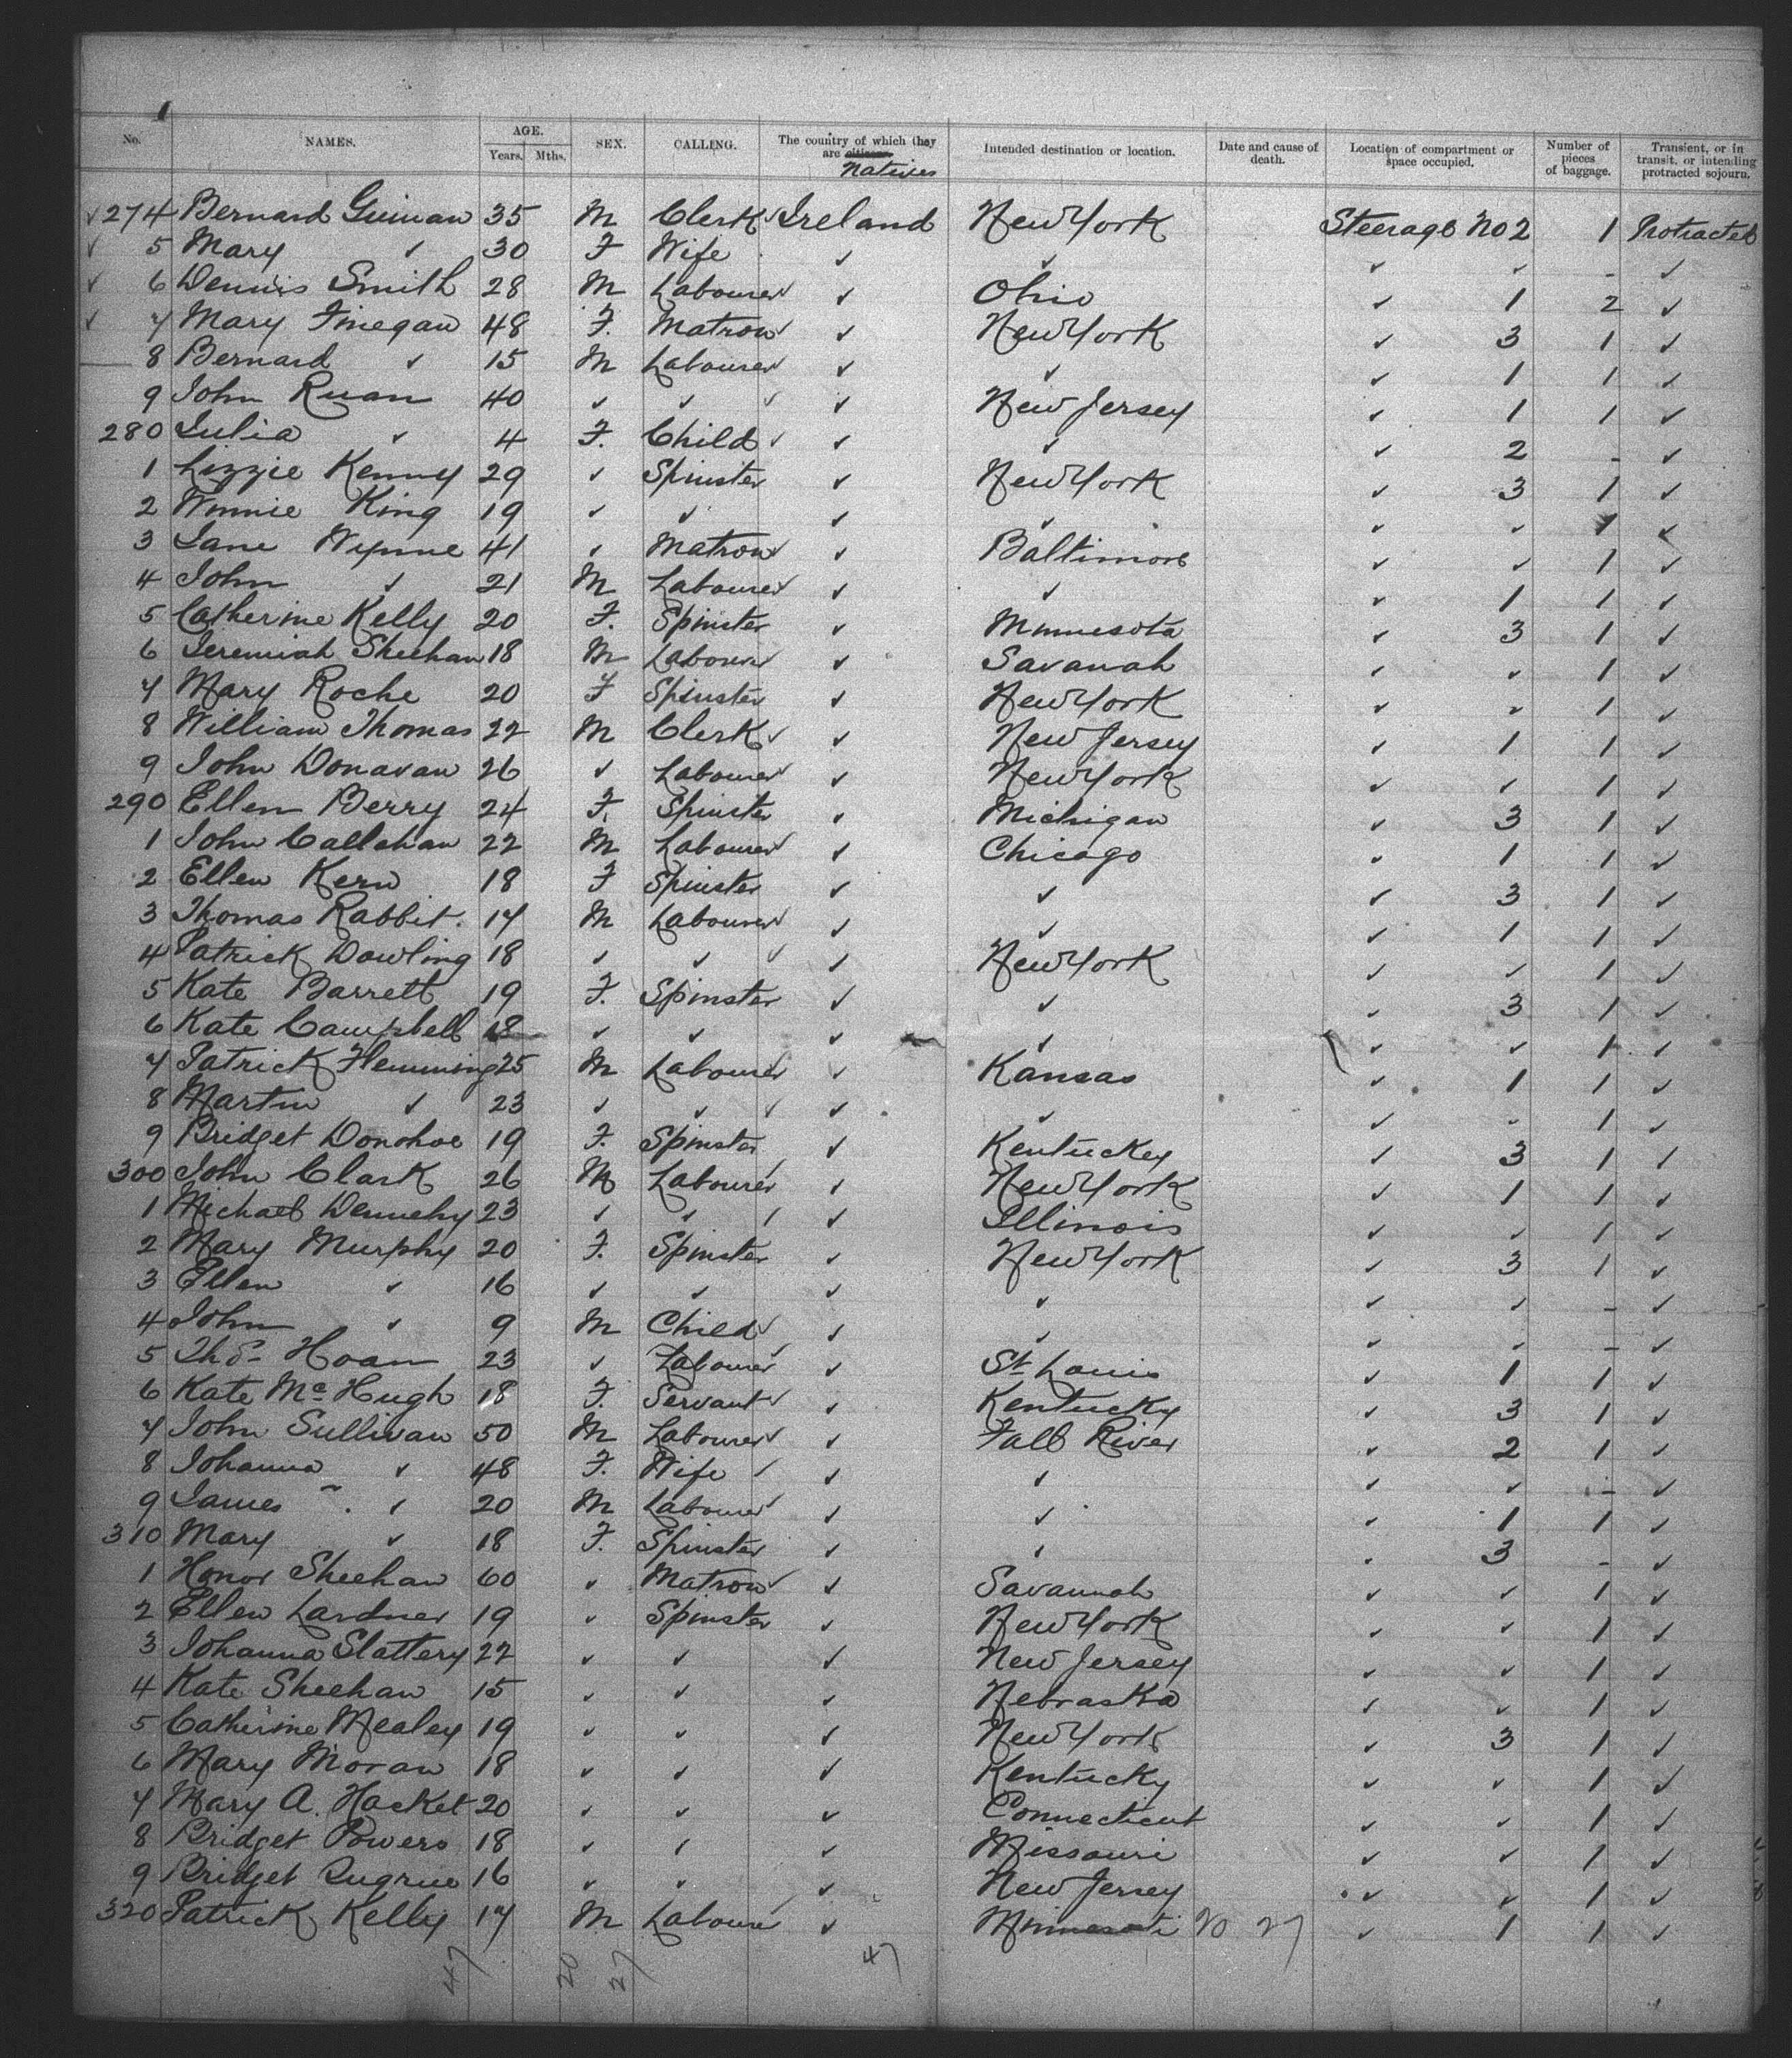 No. NAMES. AGE. Years. Mths. SEX. CALLING. The country of which they are citizens Natives Intended destination or location. Date and cause of death. Location of compartment or space occupied. Number of pieces of baggage. Transient, or in transit, or intending protracted sojourn.
✓ 274 Bernard Guinan 35 M Clerk ✓ Ireland New York Steerage No 2 1 Protracted
✓ 5 Mary ✓ 30 F Wife ✓ ✓ ✓ ✓ - ✓
✓ 6 Dennis Smith 28 M Labourer ✓ ✓ Ohio ✓ 1 2 ✓
✓ 7 Mary Finegan 48 F. Matron ✓ ✓ New York ✓ 3 1 ✓
— 8 Bernard ✓ 15 M Labourer ✓ ✓ ✓ ✓ 1 1 ✓
9 John Ruan 40 ✓ ✓ ✓ ✓ New Jersey ✓ 1 1 ✓
280 Julia ✓ 4 F. Child ✓ ✓ ✓ ✓ 2 - ✓
1 Lizzie Kenny 29 ✓ Spinster ✓ New York ✓ 3 1 ✓
2 Winnie King 19 ✓ ✓ ✓ ✓ ✓ ✓ 1 ✓
3 Jane Wynne 41 ✓ Matron ✓ ✓ Baltimore ✓ ✓ 1 ✓
4 John ✓ 21 M Labourer ✓ ✓ ✓ ✓ 1 1 ✓
5 Catherine Kelly 20 F. Spinster ✓ Minnesota ✓ 3 1 ✓
6 Jeremiah Sheehan 18 M Labourer ✓ ✓ Savanah ✓ ✓ 1 ✓
7 Mary Roche 20 F Spinster ✓ New York ✓ ✓ 1 ✓
8 William Thomas 22 M Clerk ✓ ✓ New Jersey ✓ 1 1 ✓
9 John Donavan 26 ✓ Labourer ✓ ✓ New York ✓ ✓ 1 ✓
290 Ellen Berry 24 F. Spinster ✓ Michigan ✓ 3 1 ✓
1 John Callahan 22 M Labourer ✓ ✓ Chicago ✓ 1 1 ✓
2 Ellen Kern 18 F Spinster ✓ ✓ ✓ 3 1 ✓
3 Thomas Rabbit. 17 M Labourer ✓ ✓ ✓ ✓ 1 1 ✓
4 Patrick Dowling 18 ✓ ✓ ✓ ✓ New York ✓ ✓ 1 ✓
5 Kate Barrett 19 F. Spinster ✓ ✓ ✓ 3 1 ✓
6 Kate Campbell 18 ✓ ✓ ✓ ✓ ✓ ✓ 1 ✓
7 Patrick Flemming 25 M Labourer ✓ ✓ Kansas ✓ 1 1 ✓
8 Martin ✓ 23 ✓ ✓ ✓ ✓ ✓ ✓ ✓ 1 ✓
9 Bridget Donohoe 19 F. Spinster ✓ Kentuckey ✓ 3 1 ✓
300 John Clark 26 M Labourer ✓ ✓ New York ✓ 1 1 ✓
1 Michael Dennehy 23 ✓ ✓ ✓ ✓ Illinois ✓ ✓ 1 ✓
2 Mary Murphy 20 F. Spinster ✓ New York ✓ 3 1 ✓
3 Ellen ✓ 16 ✓ ✓ ✓ ✓ ✓ ✓ - ✓
4 John ✓ 9 M Child ✓ ✓ ✓ ✓ ✓ - ✓
5 Thos Hoan 23 ✓ Labourer ✓ ✓ St Louis ✓ 1 1 ✓
6 Kate Mc Hugh 18 F. Servant ✓ ✓ Kentucky ✓ 3 1 ✓
7 John Sullivan 50 M Labourer ✓ ✓ Fall River ✓ 2 1 ✓
8 Johanna ✓ 48 F. Wife ✓ ✓ ✓ ✓ ✓ - ✓
9 James ✓ 20 M Labourer ✓ ✓ ✓ ✓ 1 1 ✓
310 Mary ✓ 18 F. Spinster ✓ ✓ ✓ 3 - ✓
1 Honor Sheehan 60 ✓ Matron ✓ ✓ Savannah ✓ ✓ 1 ✓
2 Ellen Lardner 19 ✓ Spinster ✓ New York ✓ ✓ 1 ✓
3 Johanna Slattery 22 ✓ ✓ ✓ New Jersey ✓ ✓ 1 ✓
4 Kate Sheehan 15 ✓ ✓ ✓ Nebraska ✓ ✓ 1 ✓
5 Catherine Mealey 19 ✓ ✓ ✓ New York ✓ 3 1 ✓
6 Mary Moran 18 ✓ ✓ ✓ Kentucky ✓ ✓ 1 ✓
7 Mary A. Hacket 20 ✓ ✓ ✓ Connecticut ✓ ✓ 1 ✓
8 Bridget Powers 18 ✓ ✓ ✓ Missouri ✓ ✓ 1 ✓
9 Bridget Sugrue 16 ✓ ✓ ✓ New Jersey ✓ ✓ 1 ✓
320 Patrick Kelly 17 M Labourer ✓ Minnesoti 20 27 ✓ 1 1 ✓
47 20 27 47